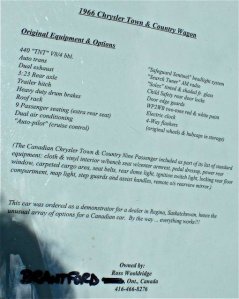 1966 Chrysler Town & Country Wagon
Original Equipment & Options
440 "TNT" V8/4 bbl.
Auto trans
Dual exhaust
3:23 Rear axle
Trailer hitch
Heavy duty drum brakes
Roof rack
9 Passenger seating (extra rear seat)
Dual air conditioning
"Auto-pilot" (cruise control)
"Safeguard Sentinel" headlight system
"Search Tuner" AM radio
"Solex" tinted & shaded glass
Child Safety rear door locks
Door edge guards
Electric clock
4-Way flashers
(original wheels & hubcaps in storage)
(The Canadian Chrysler Town & Country Nine Passenger included as part of its list of standard
equipment: cloth & vinyl interior w/bench seat w/center armrest, pedal dressup, power rear
window, carpeted cargo area, seat belts, rear dome light, ignition switch light, locking rear floor
compartment, map light, step guards and assist handles, remote air rearview mirror.)
This car was ordered as a demonstrator for a dealer in Regina, Saskatchewan, hence the
unusual array of options for a Canadian car. By the way ... everything works!!!
Owned by:
Ross Wooldridge
BRANTFORD, Ont., Canada
416-466-8276